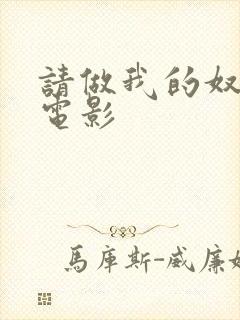 請做我的奴
電影
馬庫斯-威廉